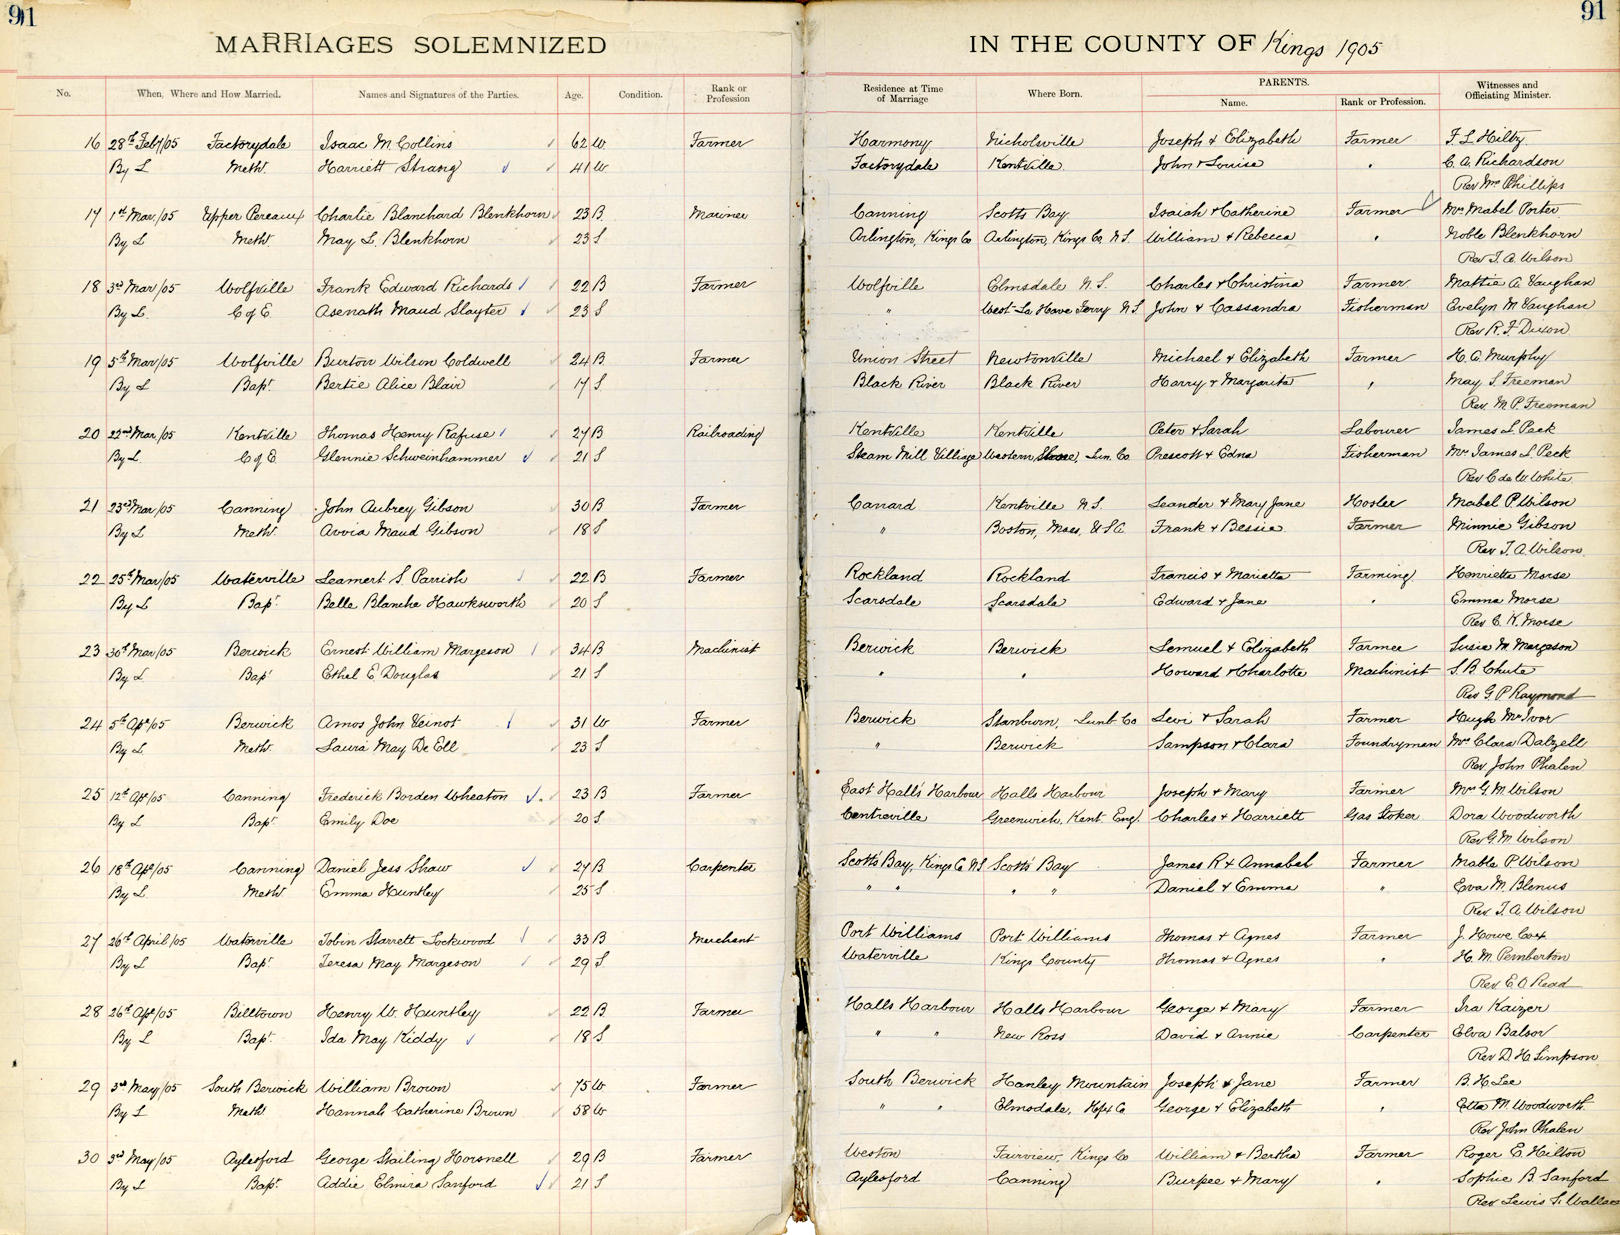 91
91
MARRIAGES SOLEMNIZED
IN THE COUNTY OF Kings 1905
No. When, Where and How Married. Names and Signatures of the Parties. Age. Condition. Rank or Profession Residence at Time of Marriage Where Born. PARENTS. Name. Rank or Profession. Witnesses and Officiating Minister.
16 28th Feby/05 Factorydale Isaac M Collins 62 W Farmer Harmony Nicholsville Joseph & Elizabeth Farmer F. L Hilty
By L Meth. Harriett Strang 41 W Factorydale Kentville John & Louisa " C. A. Richardson
Rev Wm Phillips
17 1st Mar/05 Upper Pereaux Charlie Blanchard Blenkhorn 23 B. Mariner Canning Scotts Bay Isaiah & Catherine Farmer Mrs Mabel Porter
By L Meth. May L. Blenkhorn 23 S Arlington, Kings Co Arlington, Kings Co, N.S. William & Rebecca " Noble Blenkhorn
Rev J. A. Wilson
18 3rd Mar/05 Wolfville Frank Edward Richards 22 B Farmer Wolfville Elmsdale N.S. Charles & Christina Farmer Mattie A Vaughan
By L. C of E. Asenath Maud Slayter 23 S " West La Have Ferry N S John & Cassandra Fisherman Evelyn M Vaughan
Rev R. F Dixon
19 5th Mar/05 Wolfville Burton Wilson Coldwell 24 B Farmer Union Street Newtonville Michael & Elizabeth Farmer H. A. Murphy
By L Bapt. Bertie Alice Blair 17 S Black River Black River Harry & Margarita " May S. Freeman
Rev. M. P. Freeman
20 22nd Mar/05 Kentville Thomas Henry Rafuse 27 B Railroading Kentville Kentville Peter & Sarah Labourer James L. Peck
By L. C of E Glennie Schweinhammer 21 S Steam Mill Village Western Shore, Lun. Co. Prescott & Edna Fisherman Mrs James L Peck
Rev C de W. White
21 23rd Mar/05 Canning John Aubrey Gibson 30 B Farmer Canard Kentville N.S. Leander & Mary Jane Hosler Mabel P. Wilson
By L Meth. Avvia Maud Gibson 18 S " Boston, Mass, U.S.A. Frank & Bessie Farmer Minnie Gibson
Rev. J. A Wilson
22 25th Mar/05 Waterville Leamert S. Parrish 22 B Farmer Rockland Rockland Francis & Marietta Farming Henrietta Morse
By L Bapt. Belle Blanche Hawksworth 20 S Scarsdale Scarsdale Edward & Jane " Emma Morse
Rev C. K. Morse
23 30th Mar/05 Berwick Ernest William Margeson 34 B Machinist Berwick Berwick Lemuel & Elizabeth Farmer Susie M. Margeson
By L Bapt Ethel E Douglas 21 S " " Howard & Charlotte Machinist S. B. Chute
Rev G. P Raymond
24 5th Apr/05 Berwick Amos John Veinot 31 W Farmer Berwick Stanburn, Lunt Co Levi & Sarah Farmer Hugh McIvor
By L. Meth. Laura May De Ell 23 S " Berwick Sampson & Clara Foundryman Mrs Clara Dalzell
Rev John Phalen
25 12th Apr/05 Canning Frederick Borden Wheaton 23 B Farmer East Halls Harbour Halls Harbour Joseph & Mary Farmer Mrs G. M. Wilson
By L Bapt. Emily Doe 20 S Centreville Greenwich, Kent Eng. Charles & Harriett Gas Stoker Dora Woodworth
Rev G. M. Wilson
26 18th Apr/05 Canning Daniel Jess Shaw 27 B Carpenter Scotts Bay, Kings Co NS Scotts Bay James R & Annabel Farmer Mable P Wilson
By L Meth. Emma Huntley 25 S " " " " Daniel & Emma " Eva M. Blenus
Rev. J. A. Wilson
27 26th April/05 Waterville Tobin Starrett Lockwood 33 B Merchant Port Williams Port Williams Thomas & Agnes Farmer J. Howe Cox
By L Bapt Teresa May Margeson 29 S. Waterville Kings County Thomas & Agnes " H. M. Pemberton
Rev. E O Read
28 26th Apr/05 Billtown Henry W. Huntley 22 B Farmer Halls Harbour Halls Harbour George & Mary Farmer Ira Kaizer
By L Bapt. Ida May Kiddy 18 S " " New Ross David & Annie Carpenter Elva Balsor
Rev D. H. Simpson
29 3rd May/05 South Berwick William Brown 75 W Farmer South Berwick Hanley Mountain Joseph & Jane Farmer B. H. Lee
By L Meth Hannah Catherine Brown 58 W " " Elmsdale, Hfx Co George & Elizabeth " Etta M. Woodworth
Rev John Phalen
30 3rd May/05 Aylesford George Stailing Horsnell 29 B Farmer Weston Fairview, Kings Co William & Bertha Farmer Roger E. Hilton
By L Bapt. Addie Elmira Sanford 21 S Aylesford Canning Burpee & Mary " Sophie B. Sanford
Rev Lewis S. Wallace